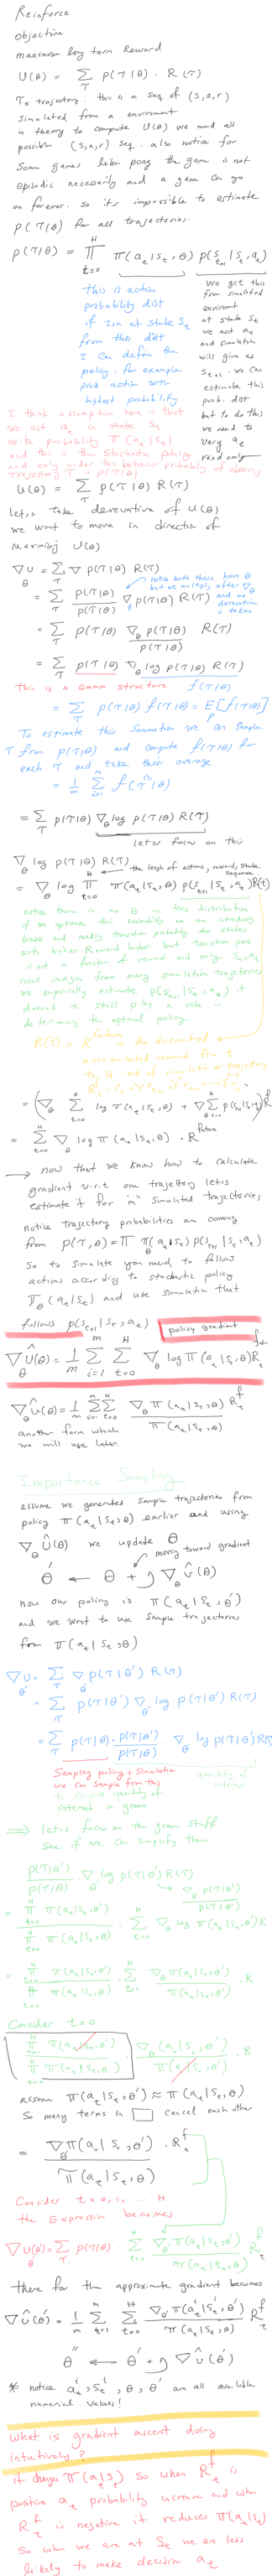 Reinforce
objective
maximize long term Reward
U(θ) = Σ_τ P(τ|θ) · R(τ)
τ = trajectory. this is a seq of (s,a,r)
simulated from a enviroment
in theory to compute U(θ) we need all
possible (s,a,r) seq. also notice for
some games like pong the game is not
episodic necessarily and a game can go
on forever. so it's impossible to estimate
P(τ|θ) for all trajectories.
P(τ|θ) = ∏_{t=0}^{H} π(a_t|s_t,θ) p(s_{t+1}|s_t,a_t)
this is action
probability dist
if I am at state s_t
from this dist
I can define the
policy, for example
pick action with
highest probability
we get this
from simulated
environt
at state s_t
we act a_t
and simulator
will give us
s_{t+1}. we can
estimate this
prob. dist
but to do this
we need to
vary a_t
randomly
I think assumption here is that
we act a_t in state s_t
with probability π(a_t|s_t)
and this is the stochastic policy
and only under this behavior probability of observing
trajectory τ is P(τ|θ)
U(θ) = Σ_τ P(τ|θ) R(τ)
lets take derivative of U(θ)
we want to move in direction of
maximizing U(θ)
∇_θ U = Σ_τ ∇ P(τ|θ) R(τ)
notice both these have θ
but we multiply after ∇_θ
and no
derivation
is taken
= Σ_τ P(τ|θ)/P(τ|θ) ∇_θ P(τ|θ) R(τ)
= Σ_τ P(τ|θ) ∇_θ P(τ|θ)/P(τ|θ) R(τ)
= Σ_τ P(τ|θ) ∇_θ log P(τ|θ) R(τ)
this is a common structure f(τ|θ)
= Σ_τ P(τ|θ) f(τ|θ) = E_P[f(τ|θ)]
To estimate this summation we can sample
τ from P(τ|θ) and compute f(τ|θ) for
each τ and take their average
= 1/m Σ_{i=1}^{m} f(τ^{(i)}|θ)
= Σ_τ P(τ|θ) ∇_θ log P(τ|θ) R(τ)
lets focus on this
∇_θ log P(τ|θ) R(τ)
H → the length of actions, reward, state sequence
= ∇_θ log ∏_{t=0}^{H} π(a_t|s_t,θ) p(s_{t+1}|s_t,a_t) R(τ)
notice there is no θ in this distribution
if we optimize this essentially we are introducing
biases and making transition probability to states
with higher Reward higher. but transition prob
is not a function of reward and only s_t, a_t
now imagine from many simulation trajectories
we emprically estimate p(s_{t+1}|s_t,a_t) it
doesn't still play a role in
determining the optimal policy
R(τ) = R^{future} the discounted
accumulated reward from t
to H end of simulator or trajectory
= (∇_θ Σ_{t=0}^{H} log π(a_t|s_t,θ) + ∇_θ Σ_{t=0}^{H} p(s_{t+1}|s_t,a_t)) R^f
= Σ_{t=0}^{H} ∇_θ log π(a_t|s_t,θ) · R^{future}
→ now that we know how to calculate
gradient w.r.t one trajectory lets
estimate it for "m" simulated trajectories,
notice trajectory probabilities are coming
from P(τ,θ) = ∏ π_θ(a_t|s_t) p(s_{t+1}|s_t,a_t)
so to simulate you need to follow
actions according to stochastic policy
π_θ(a_t|s_t) and use simulator that
follows p(s_{t+1}|s_t,a_t) policy gradient
∇_θ Û(θ) = 1/m Σ_{i=1}^{m} Σ_{t=0}^{H} ∇_θ log π(a_t|s_t,θ) R_t^{fut}
∇_θ Û(θ) = 1/m Σ_{i=1}^{m} Σ_{t=0}^{H} ∇_θ π(a_t|s_t,θ)/π(a_t|s_t,θ) R_t^f
another form which
we will use later
Importance Sampling
assume we generated sample trajectories from
policy π(a_t|s_t,θ) earlier and using
∇_θ Û(θ) we update θ
moving toward gradient
θ' ← θ + η ∇_θ Û(θ)
now our policy is π(a_t|s_t,θ')
and we want to use sample trajectories
from π(a_t|s_t,θ)
∇_θ' U = Σ_τ ∇_θ' P(τ|θ') R(τ)
= Σ_τ P(τ|θ') ∇_θ' log P(τ|θ') R(τ)
= Σ_τ P(τ|θ) · P(τ|θ')/P(τ|θ) · ∇_θ' log P(τ|θ') R(τ)
Sampling policy + simulation
we can sample from this
to compute quantity of
interest in green
quantity of
interest
⟹ lets focus on the green stuff
see if we can simplify them.
P(τ|θ')/P(τ|θ) · ∇_θ' log P(τ|θ') R(τ)
↘ ∇_θ' P(τ|θ')/P(τ|θ')
= ∏_{t=0}^{H} π(a_t|s_t,θ')/∏_{t=0}^{H} π(a_t|s_t,θ) · Σ_{t=0}^{H} ∇_θ' log π(a_t|s_t,θ') R
= ∏_{t=0}^{H} π(a_t|s_t,θ')/∏_{t=0}^{H} π(a_t|s_t,θ) · Σ_{t=0}^{H} ∇_θ' π(a_t|s_t,θ')/π(a_t|s_t,θ') · R
Consider t=0
∏_{t=0}^{H} π(a_t|s_t,θ')/∏_{t=0}^{H} π(a_t|s_t,θ) · ∇_θ'(a_0|s_0,θ')/π(a_0|s_0,θ') · R
assume π(a_t|s_t,θ') ≈ π(a_t|s_t,θ)
so many terms in □ cancel each other
= ∇_θ' π(a_0|s_0,θ')/π(a_t|s_t,θ) · R_t^f
Consider t=0,1,....H
the Expression becomes
∇_θ' U(θ') = Σ_τ P(τ|θ) · Σ_{t=0}^{H} ∇_θ' π(a_t|s_t,θ')/π(a_t|s_t,θ) R_t^f
there for the approximate gradient becomes
∇Û(θ') = 1/m Σ_{i=1}^{m} Σ_{t=0}^{H} ∇_θ' π(a_t^i|s_t^i,θ')/π(a_t|s_t,θ) R_t^f
θ'' ← θ' + η ∇Û(θ')
* notice a_t^i, s_t^i, θ, θ' are all available
numerical values!
what is gradient ascent doing
intuitively?
it changes π(a|s) so when R_t^f is
postive a_t probability increase and when
R_t^f is negative it reduces π(a_t|s_t)
so when we are at s_t we are less
likely to make decision a_t